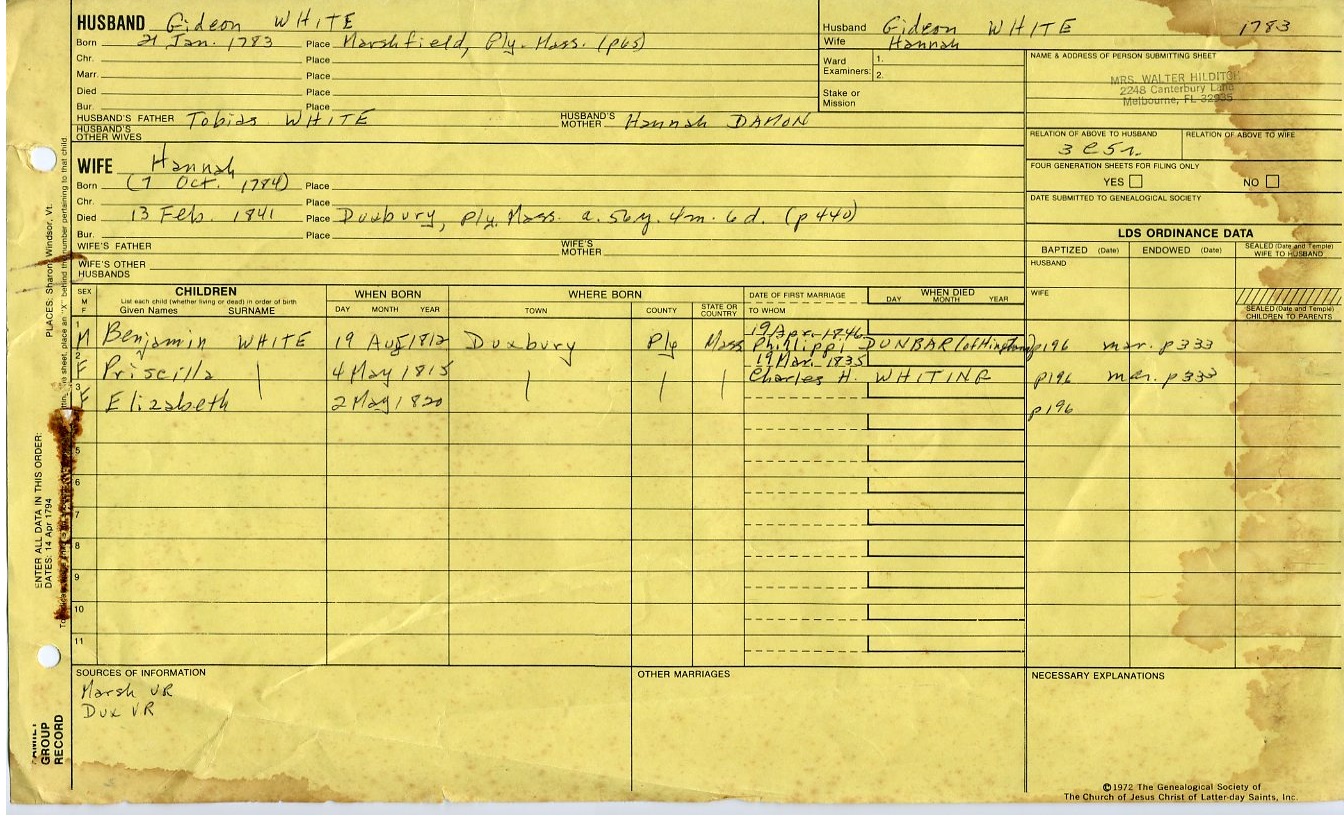 HUSBAND Gideon WHITE
Born 21 Jan. 1783 Place Marshfield, Ply. Mass. (p65)
Chr. Place
Marr. Place
Died Place
Bur. Place
HUSBAND'S FATHER Tobias WHITE HUSBAND'S MOTHER Hannah DAMON
HUSBAND'S OTHER WIVES
Husband Gideon WHITE 1783
Wife Hannah
Ward Examiners: 1.
2.
Stake or Mission
NAME & ADDRESS OF PERSON SUBMITTING SHEET
MRS. WALTER HILDITCH
2248 Canterbury Lane
Melbourne, FL 32935
RELATION OF ABOVE TO HUSBAND RELATION OF ABOVE TO WIFE
3 C 5 r.
FOUR GENERATION SHEETS FOR FILING ONLY
YES NO
DATE SUBMITTED TO GENEALOGICAL SOCIETY
WIFE Hannah
Born (7 Oct. 1784) Place
Chr. Place
Died 13 Feb. 1841 Place Duxbury, Ply. Mass. a. 56y. 4m. 6d. (p440)
Bur. Place
WIFE'S FATHER WIFE'S MOTHER
WIFE'S OTHER HUSBANDS
LDS ORDINANCE DATA
BAPTIZED (Date) ENDOWED (Date) SEALED (Date and Temple) WIFE TO HUSBAND
HUSBAND
WIFE
SEALED (Date and Temple) CHILDREN TO PARENTS
SEX M F CHILDREN WHEN BORN WHERE BORN DATE OF FIRST MARRIAGE WHEN DIED
List each child (whether living or dead) in order of birth
Given Names SURNAME DAY MONTH YEAR TOWN COUNTY STATE OR COUNTRY TO WHOM DAY MONTH YEAR
1 19 Apr. 1846
M Benjamin WHITE 19 Aug 1812 Duxbury Ply Mass Philippi DUNBAR (of Hingham) p196 mar. p333
2 19 Mar. 1835
F Priscilla 4 May 1815 Charles H. WHITING p196 mar. p333
3
F Elizabeth 2 May 1820 p196
5
6
7
8
9
10
11
SOURCES OF INFORMATION
Marsh VR
Dux VR
OTHER MARRIAGES
NECESSARY EXPLANATIONS
©1972 The Genealogical Society of
The Church of Jesus Christ of Latter-day Saints, Inc.
PLACES: Sharon, Windsor, Vt.
ENTER ALL DATA IN THIS ORDER:
DATES: 14 Apr 1794
place an "X" behind the number pertaining to that child.
GROUP
RECORD